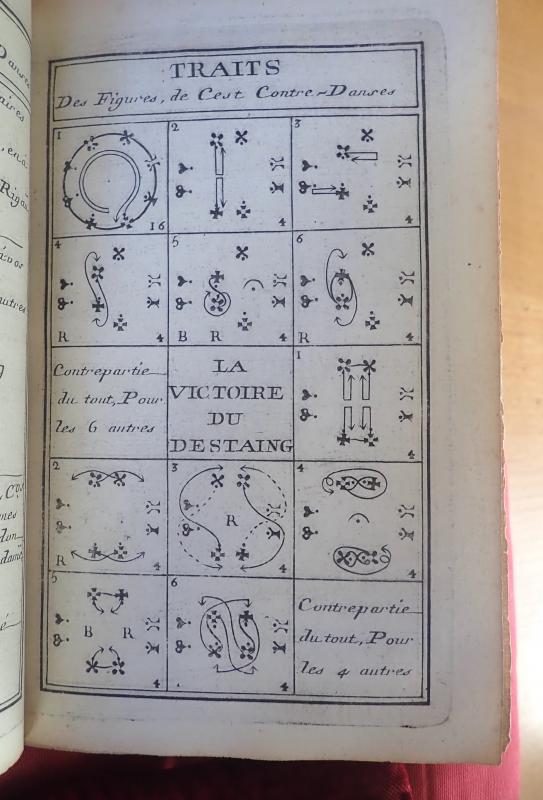 TRAITS
Des Figures, de Cest Contre-Danses
1
16
2
4
3
4
4
R
4
5
B R
4
6
R
4
Contrepartie
du tout, Pour
les 6 autres
LA
VICTOIRE
DU
DESTAING
1
4
2
R
4
3
R
4
4
4
5
B R
4
6
4
Contrepartie
du tout, Pour
les 4 autres